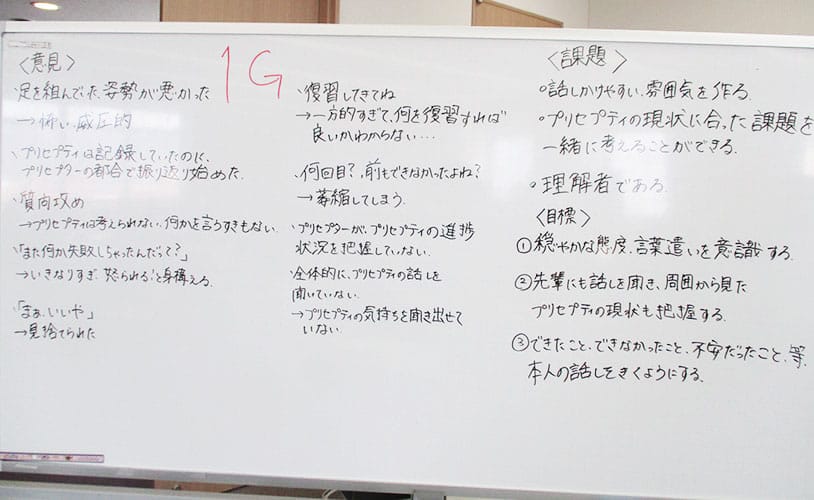 1G
〈意見〉
・足を組んでいた、姿勢が悪かった
→怖い、威圧的
・プリセプティは記録していたのに、
プリセプターの都合で振り返り始めた.
・質問攻め
→プリセプティは考えられない、何かを言うすきもない.
・「また何か失敗しちゃったんだって?」
→いきなりすぎ、怒られる!と身構える.
・「まぁ、いいや」
→見捨てられた
・復習してきてね
→一方的すぎて、何を復習すれば
良いかわからない…
・何回目?、前もできなかったよね?
→萎縮してしまう.
・プリセプターが、プリセプティの進捗
状況を把握していない.
・全体的に、プリセプティの話しを
聞いていない.
→プリセプティの気持ちを聞き出せて
いない.
〈課題〉
・話しかけやすい、雰囲気を作る.
・プリセプティの現状に合った課題を
一緒に考えることができる.
・理解者である.
〈目標〉
①穏やかな態度、言葉遣いを意識する.
②先輩にも話しを聞き、周囲から見た
プリセプティの現状も把握する.
③できたこと、できなかったこと、不安だったこと、等、
本人の話しをきくようにする.